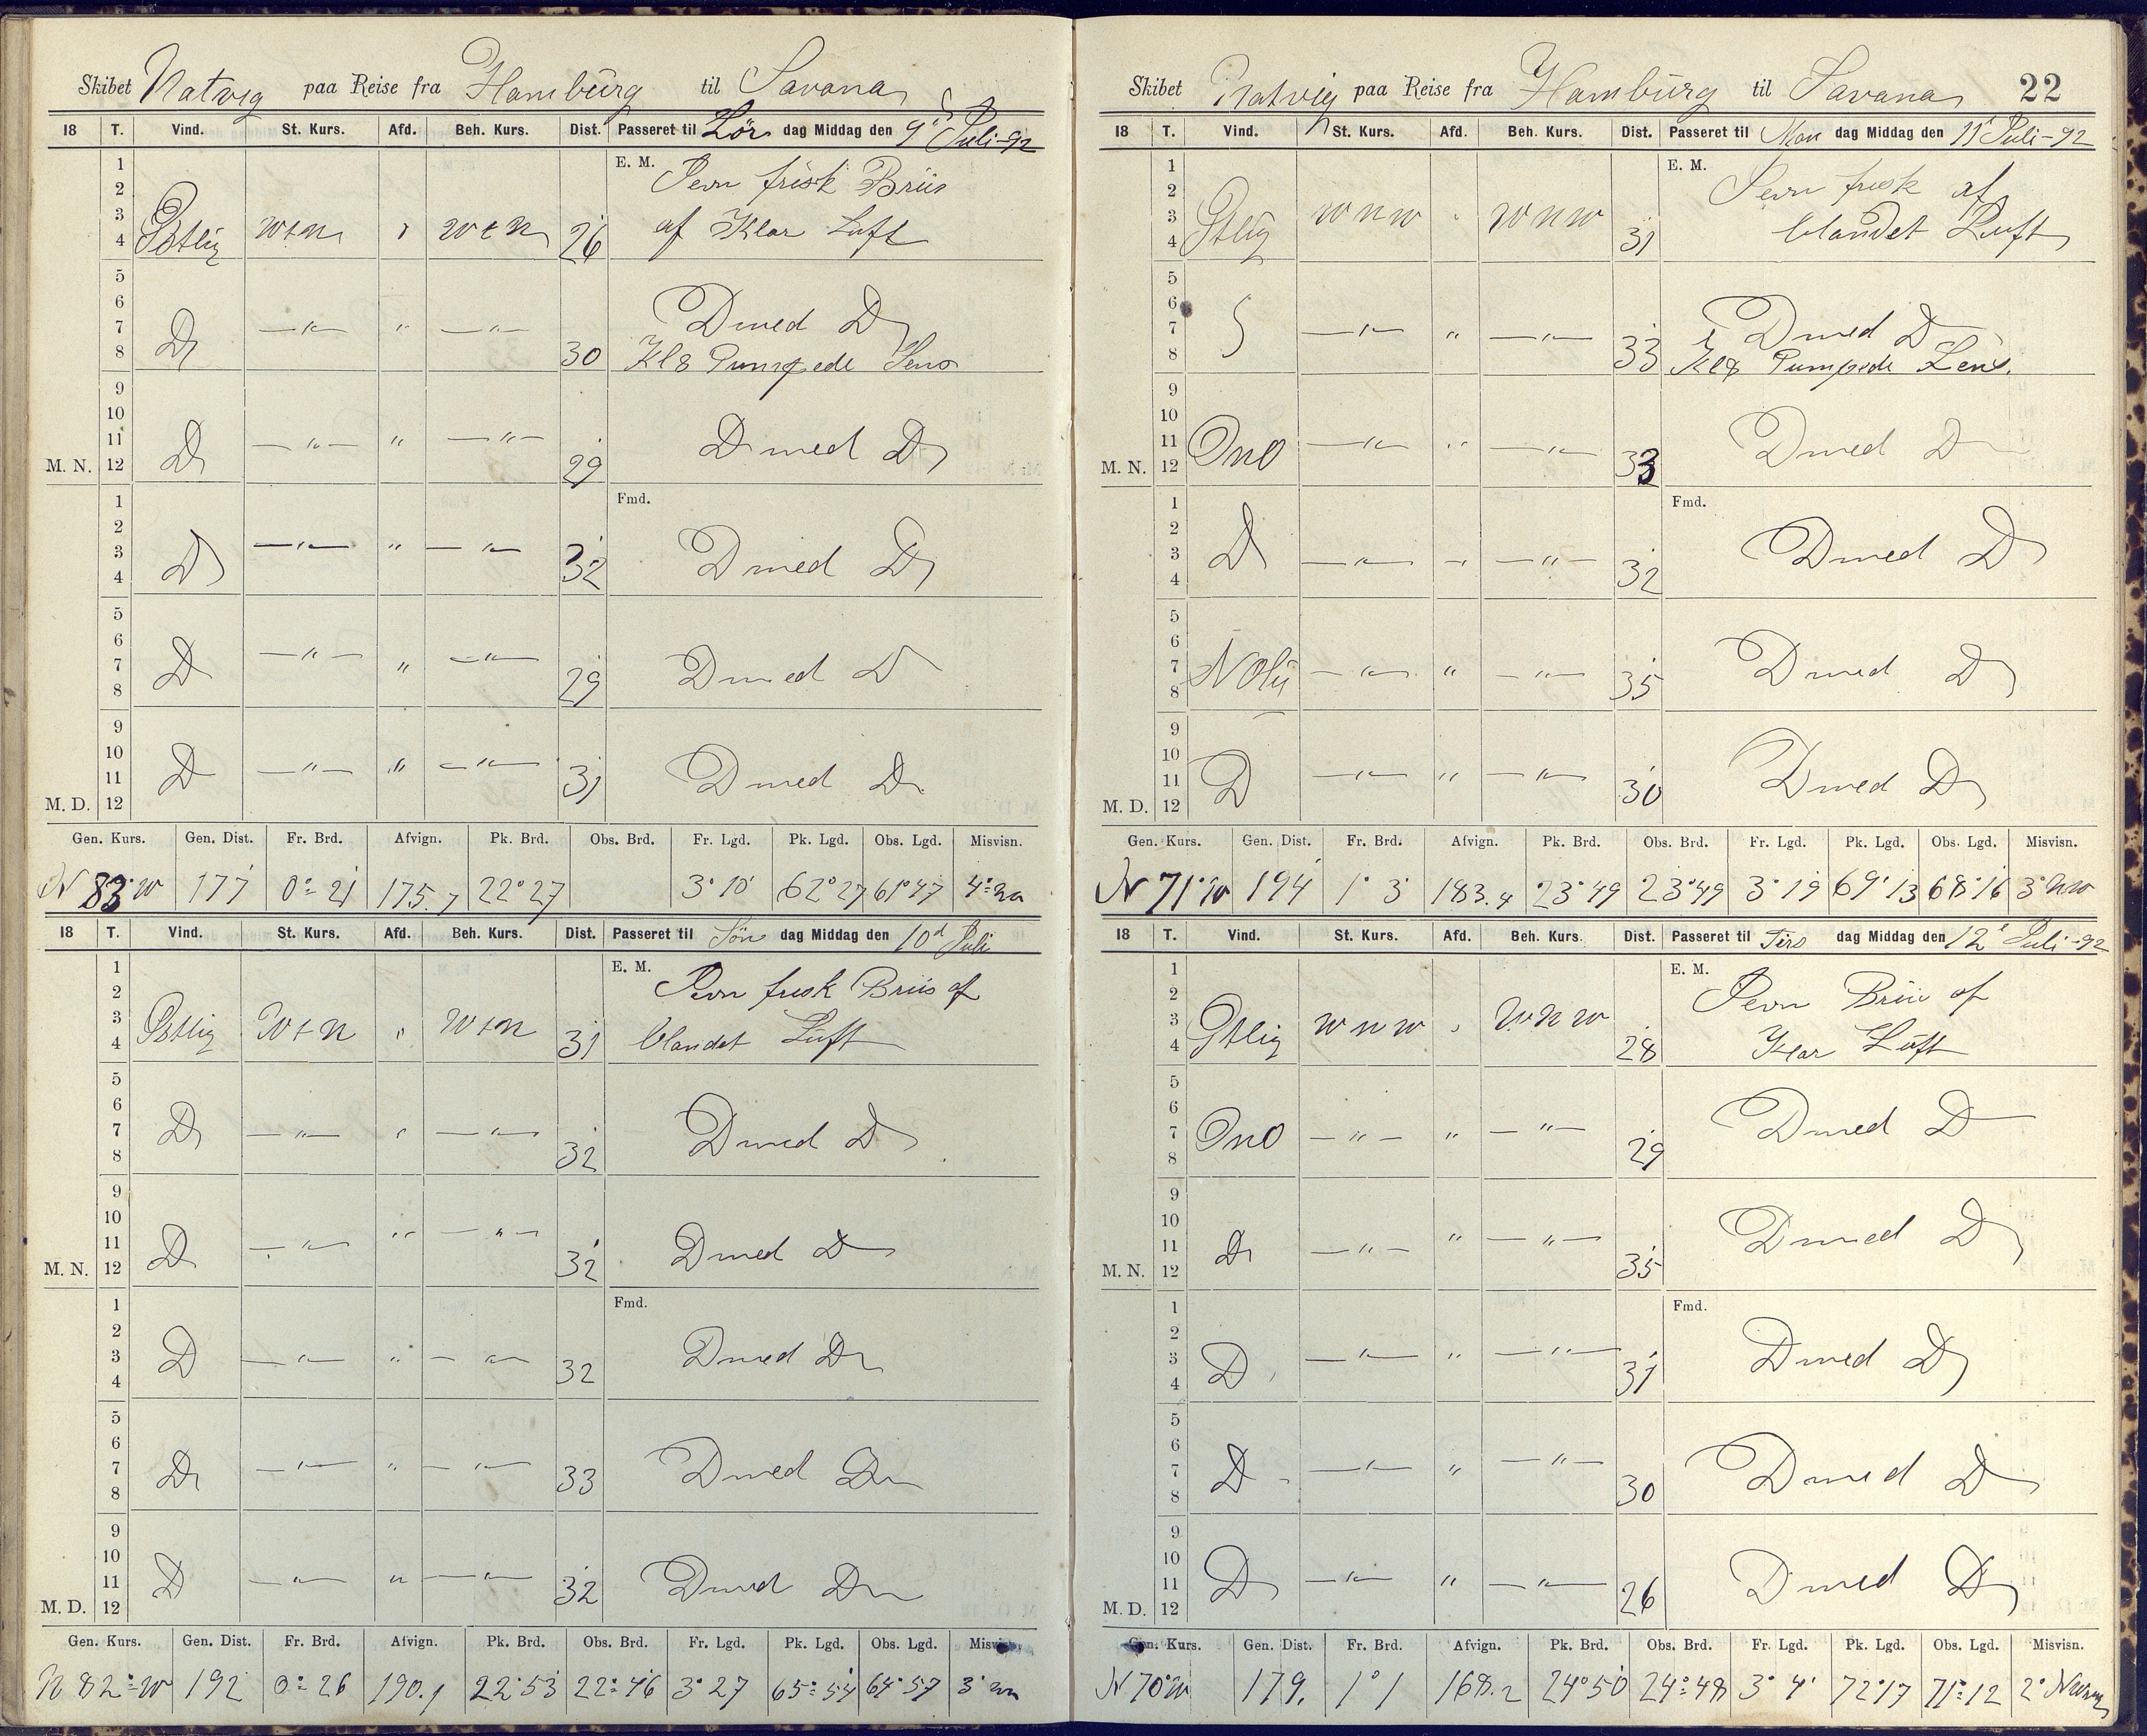 Skibet Natvig paa Reise fra Hamburg til Savana
18 T. Vind. St. Kurs. Afd. Beh. Kurs. Dist. Passeret til Lör dag Middag den 9d Juli-92
1 E. M. Jevn frisk Briis
2
3 Östlig WtN " WtN 26 af Klar Luft
4
5
6 Do —"— " —"— Do med Do
7
8 30 Kl 8 Pumpede Lens
9
10
11 Do —"— " —"— Do med Do
M. N. 12 29
1 Fmd.
2
3 Do —"— " —"— 32 Do med Do
4
5
6
7 Do —"— " —"— 29 Do med Do
8
9
10
11 Do —"— " —"— 31 Do med Do
M. D. 12
Gen. Kurs. Gen. Dist. Fr. Brd. Afvign. Pk. Brd. Obs. Brd. Fr. Lgd. Pk. Lgd. Obs. Lgd. Misvisn.
N 83° W 177 0° 21 175.7 22° 27 3° 10' 62° 27 61° 47
18 T. Vind. St. Kurs. Afd. Beh. Kurs. Dist. Passeret til Sön dag Middag den 10d Juli
1 E. M. Jevn frisk Briis af
2
3 Östlig WtN " WtN 31 blandet Luft
4
5
6
7 Do —"— " —"— 32 Do med Do
8
9
10
11 Do —"— " —"— 32 Do med Do
M. N. 12
1 Fmd.
2
3 Do —"— " —"— 32 Do med Do
4
5
6
7 Do —"— " —"— 33 Do med Do
8
9
10
11 Do —"— " —"— 32 Do med Do
M. D. 12
Gen. Kurs. Gen. Dist. Fr. Brd. Afvign. Pk. Brd. Obs. Brd. Fr. Lgd. Pk. Lgd. Obs. Lgd. Misvisn.
N 82° W 192 0° 26 190.1 22° 53 22° 46 3° 27 65° 54 64° 57
Skibet Natvig paa Reise fra Hamburg til Savana 22
18 T. Vind. St. Kurs. Afd. Beh. Kurs. Dist. Passeret til Man dag Middag den 11' Juli-92
1 E. M. Jevn frisk af
2
3 Östlig WNW " WNW 31 blandet Luft
4
5
6
7 —"— " —"— 33 Do med Do
8 Kl 8 Pumpede Lens.
9
10
11 ONO —"— " —"— 33 Do med Do
M. N. 12
1 Fmd.
2
3 Do —"— " —"— 32 Do med Do
4
5
6
7 —"— " —"— 35 Do med Do
8
9
10
11 Do —"— " —"— 30 Do med Do
M. D. 12
Gen. Kurs. Gen. Dist. Fr. Brd. Afvign. Pk. Brd. Obs. Brd. Fr. Lgd. Pk. Lgd. Obs. Lgd. Misvisn.
N 71° W 194 1° 3' 183.4 23° 49 23° 49 3° 19 69° 13 68° 16 3° NW
18 T. Vind. St. Kurs. Afd. Beh. Kurs. Dist. Passeret til Tirs dag Middag den 12' Juli-92
1 E. M. Jevn Briis af
2
3 Östlig WNW " WNW 28 Klar Luft
4
5
6
7 ONO —"— " —"— 29 Do med Do
8
9
10
11 Do —"— " —"— 35 Do med Do
M. N. 12
1 Fmd.
2
3 Do —"— " —"— 31 Do med Do
4
5
6
7 Do —"— " —"— 30 Do med Do
8
9
10
11 Do —"— " —"— 26 Do med Do
M. D. 12
Gen. Kurs. Gen. Dist. Fr. Brd. Afvign. Pk. Brd. Obs. Brd. Fr. Lgd. Pk. Lgd. Obs. Lgd. Misvisn.
N 70° W 179. 1° 1 168.2 24° 50 24° 48 3° 4' 72° 17 71° 12 2°